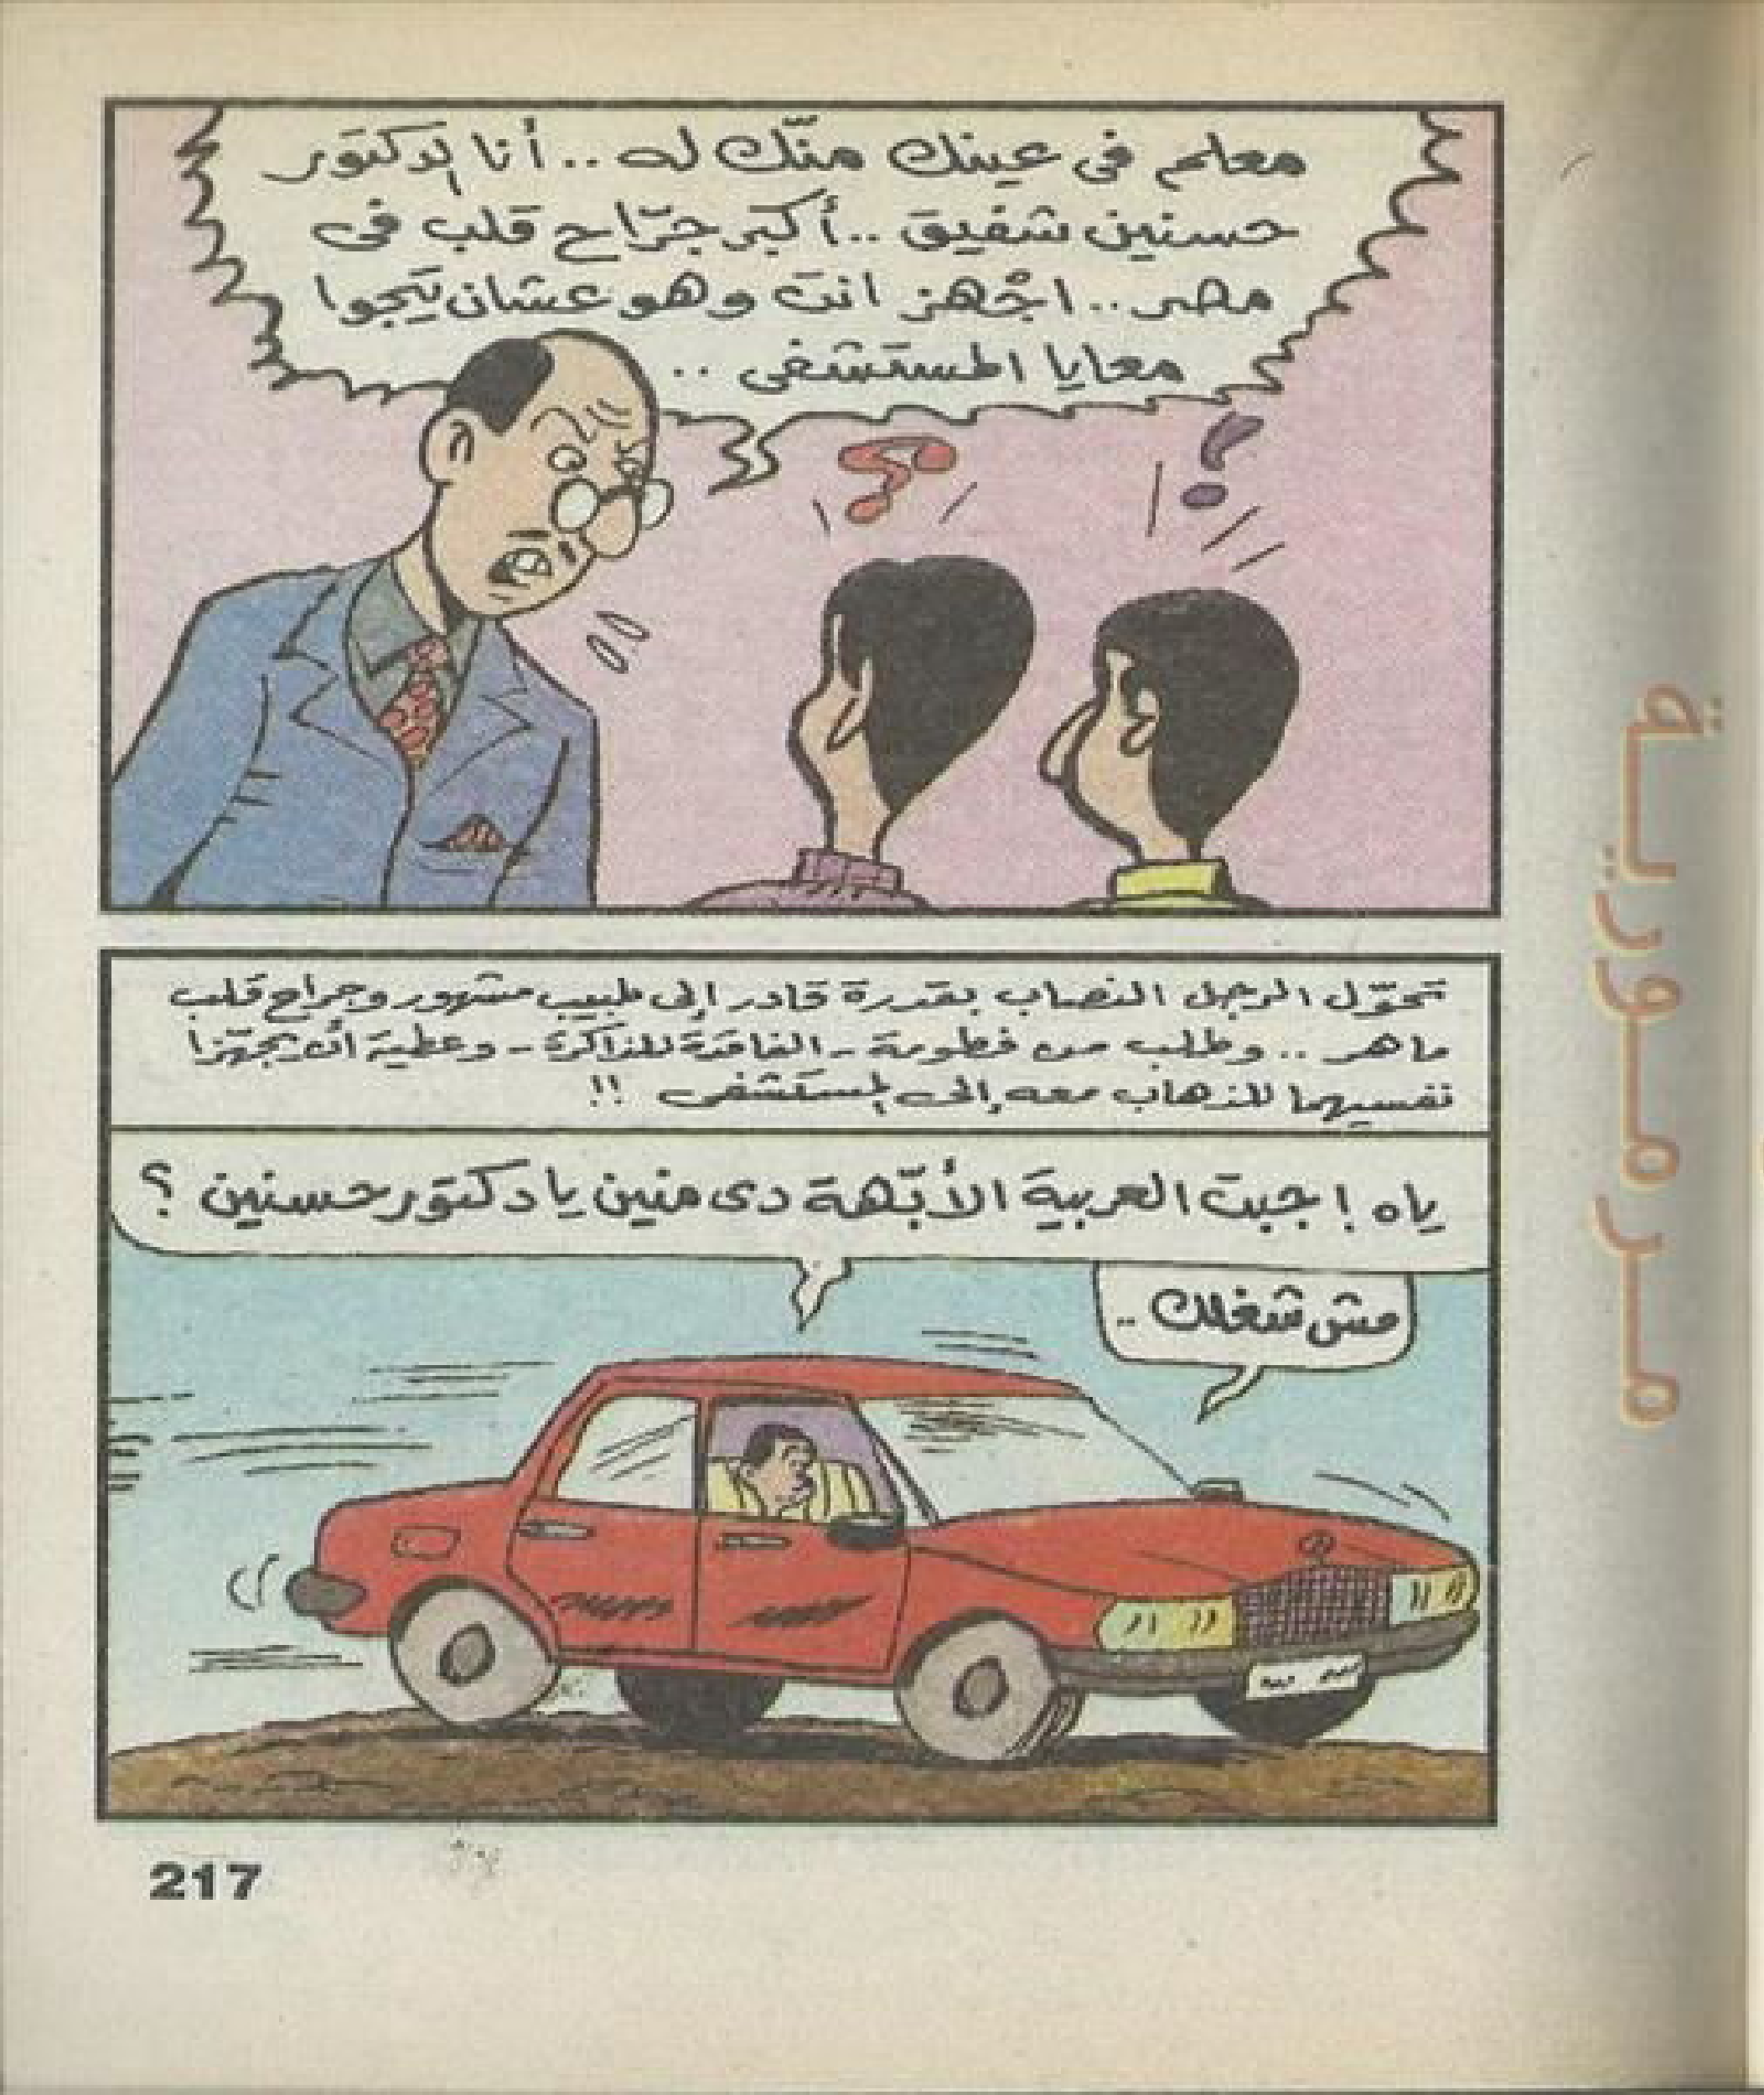 معلم فى عينك منّك له .. أنا الدكتور
حسنين شفيق .. أكبر جرّاح قلب فى
مصر .. اجْهز انت وهو عشان تيجوا
معايا المستشفى ..
تحوّل الرجل النصاب بقدرة قادر إلى طبيب مشهور وجراح قلب
ماهر .. وطلب من فطومة - الفاقدة للذاكرة - وعطية أن يجهّزا
نفسيهما للذهاب معه إلى المستشفى !!
ياه ! جبت العربية الأبّهة دى منين يا دكتور حسنين ؟
مش شغلك ..
مرمورية
217